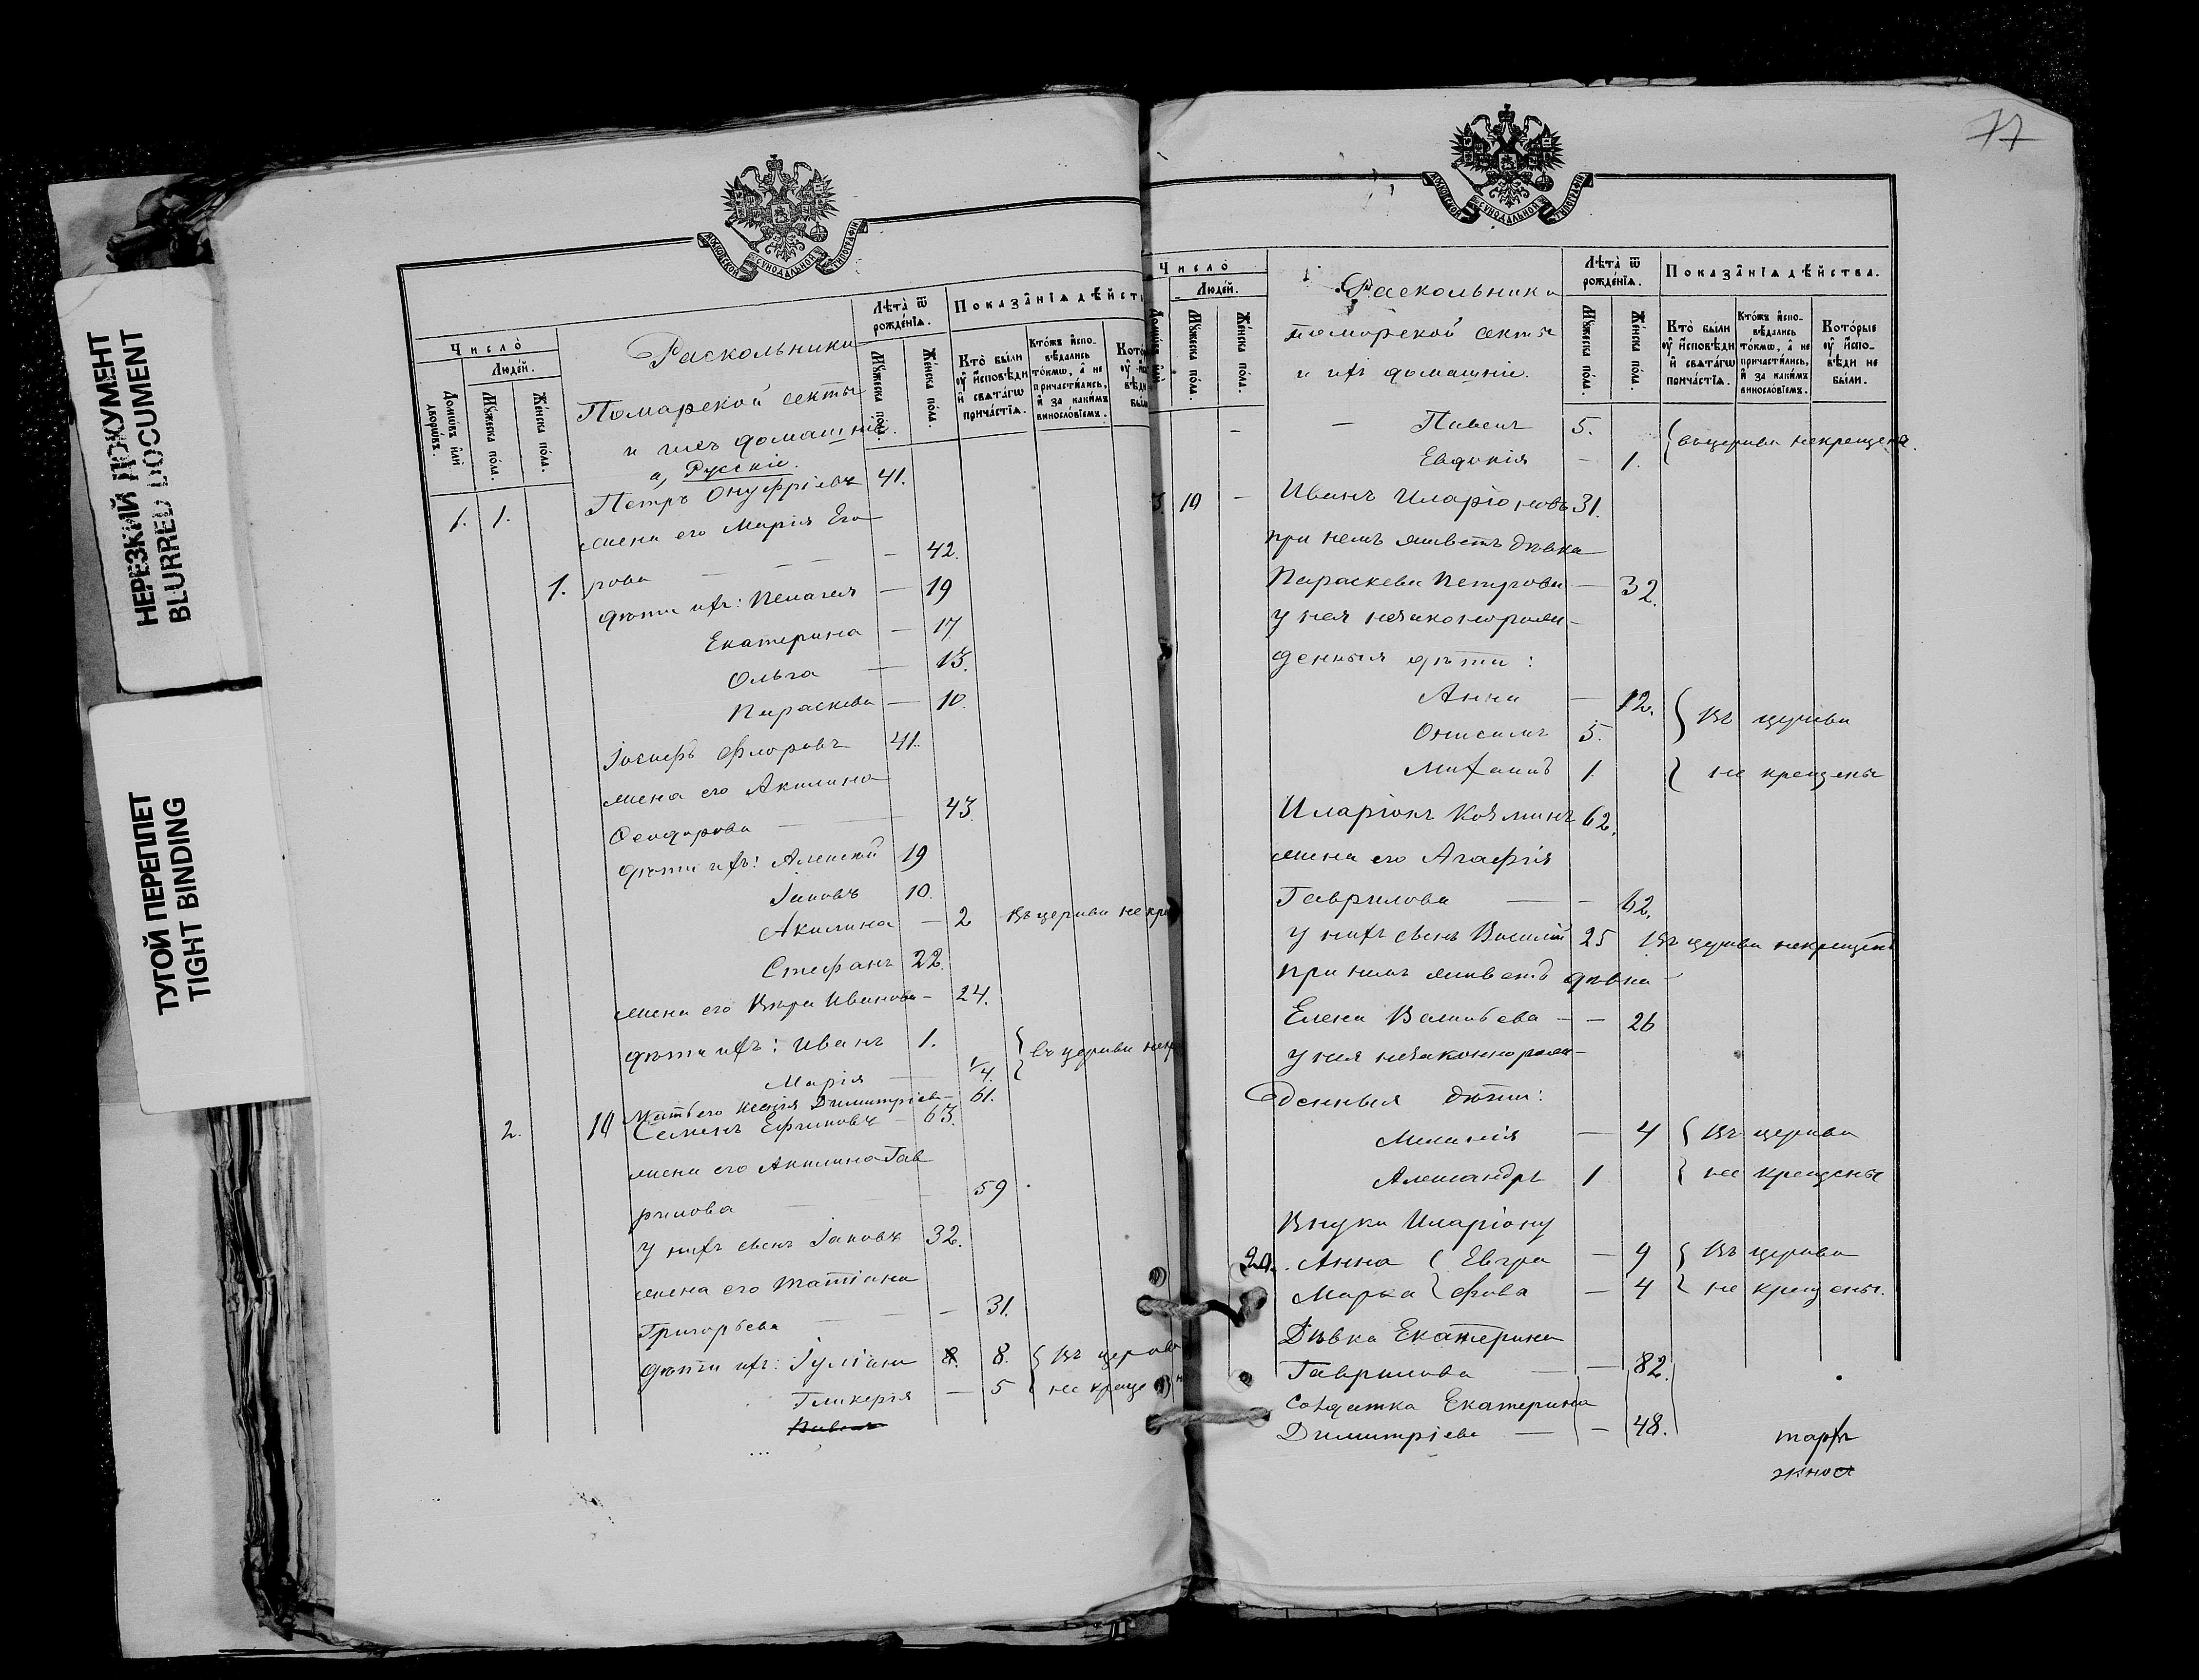 НЕРЕЗКИЙ ДОКУМЕНТ
BLURRED DOCUMENT
ТУГОЙ ПЕРЕПЛЕТ
TIGHT BINDING
МОСКОВСКОЙ СУНОДАЛЬНОЙ ТИПОГРАФІИ
Число̀
Люде́й.
Домѡ́въ и҆лѝ дворѡ́въ.
Мꙋ́жеска по́ла.
Же́нска по́ла.
Раскольники
Поморской секты
и ихъ домашніе.
а, Русскіе.
Лѣта̀ ѿ рожде́нїѧ.
Мꙋ́жеска по́ла.
Же́нска по́ла.
Показа̑нїѧ дѣ́йст
Кто̀ бы́ли ᲂу҆ и҆сповѣ́ди и҆ свѧта́гѡ прича́стїѧ.
Кто́жъ и҆спо-вѣ́дались то́кмѡ, а҆ не причасти́лись, и҆ за каки́мъ винословїемъ.
1. 1. Петръ Онуфріевъ 41.
жена его Марія Его
1. рова — — — 42.
дѣти ихъ: Пелагея — 19
Екатерина — 17
Ольга — 13.
Параскева — 10.
Іосифъ Флоровъ 41.
жена его Акилина
Ѳеодорова — 43.
дѣти ихъ: Алексѣй 19
Іаковъ 10.
Акилина — 2 въ церкви не кре
Стефанъ 22.
жена его Вѣра Иванова — 24.
дѣти ихъ: Иванъ 1. { въ церкви некр
Марія — 1/4.
Мать его Ксенія Димитріева — 61.
2. 10 Семенъ Ефимовъ — 63.
жена его Акилина Гав
рилова — — 59.
у нихъ сынъ Іаковъ 32.
жена его Татіана
Григорьева — — 31.
дѣти ихъ: Іуліана 8. 8. { въ церкви
Гликерія — 5 { не креще н
Павелъ
77
МОСКОВСКОЙ СУНОДАЛЬНОЙ ТИПОГРАФІИ
Число̀
Люде́й.
Мꙋ́жеска по́ла.
Же́нска по́ла.
Раскольники
поморской секты
и ихъ домашніе.
Лѣта̀ ѿ рожде́нїѧ.
Мꙋ́жеска по́ла.
Же́нска по́ла.
Показа̑нїѧ дѣ́йства.
Кто̀ бы́ли ᲂу҆ и҆сповѣ́ди и҆ свѧта́гѡ прича́стїѧ.
Кто́жъ и҆спо-вѣ́дались то́кмѡ, а҆ не причасти́лись, и҆ за каки́мъ винословїемъ.
Кото́рые ᲂу҆ и҆спо-вѣ́ди не бы́ли.
— Павелъ 5. { въ церкви некрещена.
Евдокія — 1.
3. 10 — Иванъ Иларіоновъ 31.
при немъ живетъ дѣвка
Параскева Петрова — 32.
у нея незаконорож-
денныя дѣти:
Анна — 12. { въ церкви
Онисимъ 5.
Михаилъ 1. { не крещены
Иларіонъ Козминъ 62.
жена его Агафія
Гаврилова — — 62.
у нихъ сынъ Василій 25 въ церкви некрещенъ
при немъ живетъ дѣвка —
Елена Васильева — — 26
у нея незаконнорож-
денныя дѣти:
Меланія — 4 { въ церкви
Александръ 1 { не крещены
Внуки Иларіону
20. Анна { Евгра — 9 { въ церкви
Марья { фова — 4 { не крещены.
Дѣвка Екатерина
Гаврилова — — 82.
Солдатка Екатерина
Димитріева — — 48.